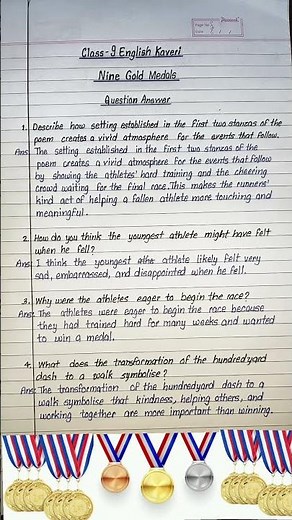 Class-9 English Kaveri
Nine Gold Medals
Question Answer
1. Describe how setting established in the first two stanzas of the
poem creates a vivid atmosphere for the events that follow.
Ans: The setting established in the first two stanzas of the
poem creates a vivid atmosphere for the events that follow
by showing the athletes' hard training and the cheering
crowd waiting for the final race. This makes the runners'
kind act of helping a fallen athlete more touching and
meaningful.
2. How do you think the youngest athlete might have felt
when he fell?
Ans: I think the youngest athlete likely felt very
sad, embarrassed, and disappointed when he fell.
3. Why were the athletes eager to begin the race?
Ans: The athletes were eager to begin the race because
they had trained hard for many weeks and wanted
to win a medal.
4. What does the transformation of the hundredyard
dash to a walk symbolise?
Ans: The transformation of the hundredyard dash to a
walk symbolise that kindness, helping others, and
working together are more important than winning.